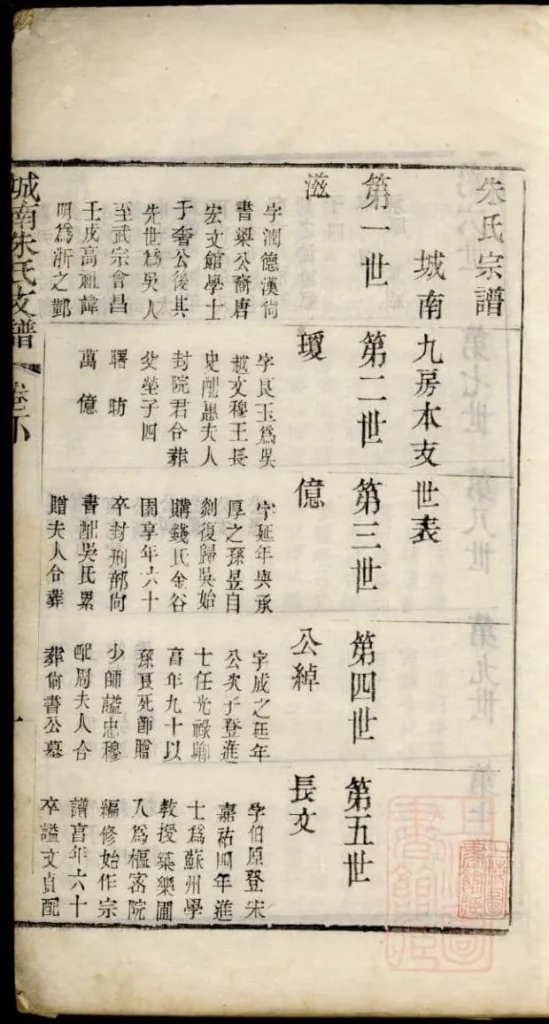 朱氏宗譜
城南九房本支世表
第一世
第二世
第三世
第四世
第五世
滋
字潤德漢尙
書梁公裔唐
宏文館學士
于奢公後其
先世爲吳人
至武宗會昌
壬戌高祖諱
明爲浙之鄞
瓊
字良玉爲吳
越文穆王長
史配惠夫人
封院君合葬
父塋子四
曙昉
萬億
億
字延年與承
厚之孫昱自
剡復歸吳始
購錢氏金谷
園享年六十
卒封刑部尙
書配吳氏累
贈夫人合葬
公綽
字成之延年
公次子登進
士任光祿卿
富年九十以
孫夏死節贈
少師謚忠穆
配周夫人合
葬尙書公墓
長文
字伯原登宋
嘉祐四年進
士爲蘇州學
教授築樂圃
入爲樞密院
編修始作宗
譜富年六十
卒謚文貞配
城南朱氏支譜
卷下
一